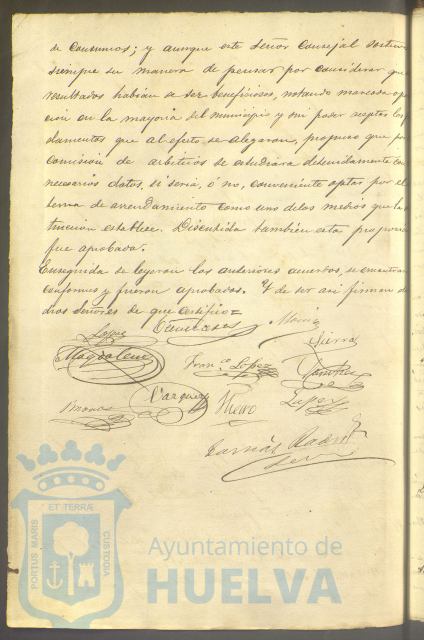 de Consumos; y aunque este señor Consejal sostuvo
siempre su manera de pensar por considerar que
resultados habian de ser beneficiosos, notando marcada opo
cion en la mayoria del municipio y sin poder aceptar los
damentos que al efecto se alegaron, propuso que por
Comisión de arbitrios se estudiara detenidamente con
necesarios datos, si seria, ó no, conveniente optar por el
tema de arrendamiento como uno de los medios que la
truccion establece. Discutida tambien esta proposi
fue aprobada.
Enseguida se leyeron los anteriores acuerdos, se encontraron
conformes y fueron aprobados. Y de ser asi firman
dros señores de que certifico=
Lopez
Sierra
Magdalena
Franco. Lopez
Vazquez
Lopez
ET TERRÆ
PORTUS MARIS
CUSTODIA
Ayuntamiento de
HUELVA